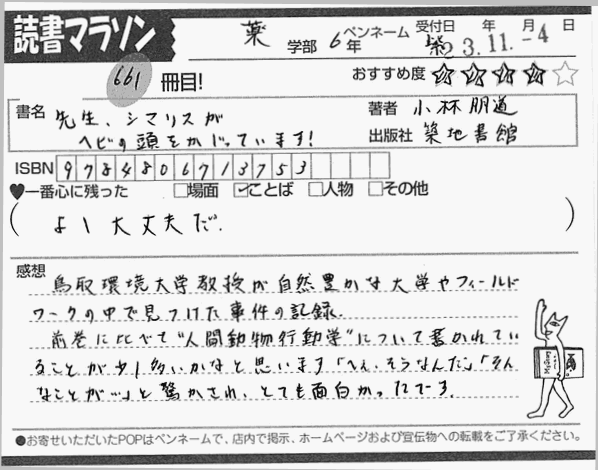 読書マラソン
薬 学部 6年 ペンネーム 紫 受付日 年 月 日
23.11.-4
661 冊目! おすすめ度 ★★★★☆
書名 先生、シマリスが
ヘビの頭をかじっています!
著者 小林朋道
出版社 築地書館
ISBN 9784806713753
♥一番心に残った □場面 ☑ことば □人物 □その他
(よし大丈夫だ.)
感想
鳥取環境大学教授が自然豊かな大学やフィールド
ワークの中で見つけた事件の記録.
前巻に比べて"人間動物行動学"について書かれてい
ることが少し多いかなと思います「へぇ、そうなんだ」「そん
なことが…」と驚かされ、とても面白かったです.
●お寄せいただいたPOPはペンネームで、店内で掲示、ホームページおよび宣伝物への転載をご了承ください。